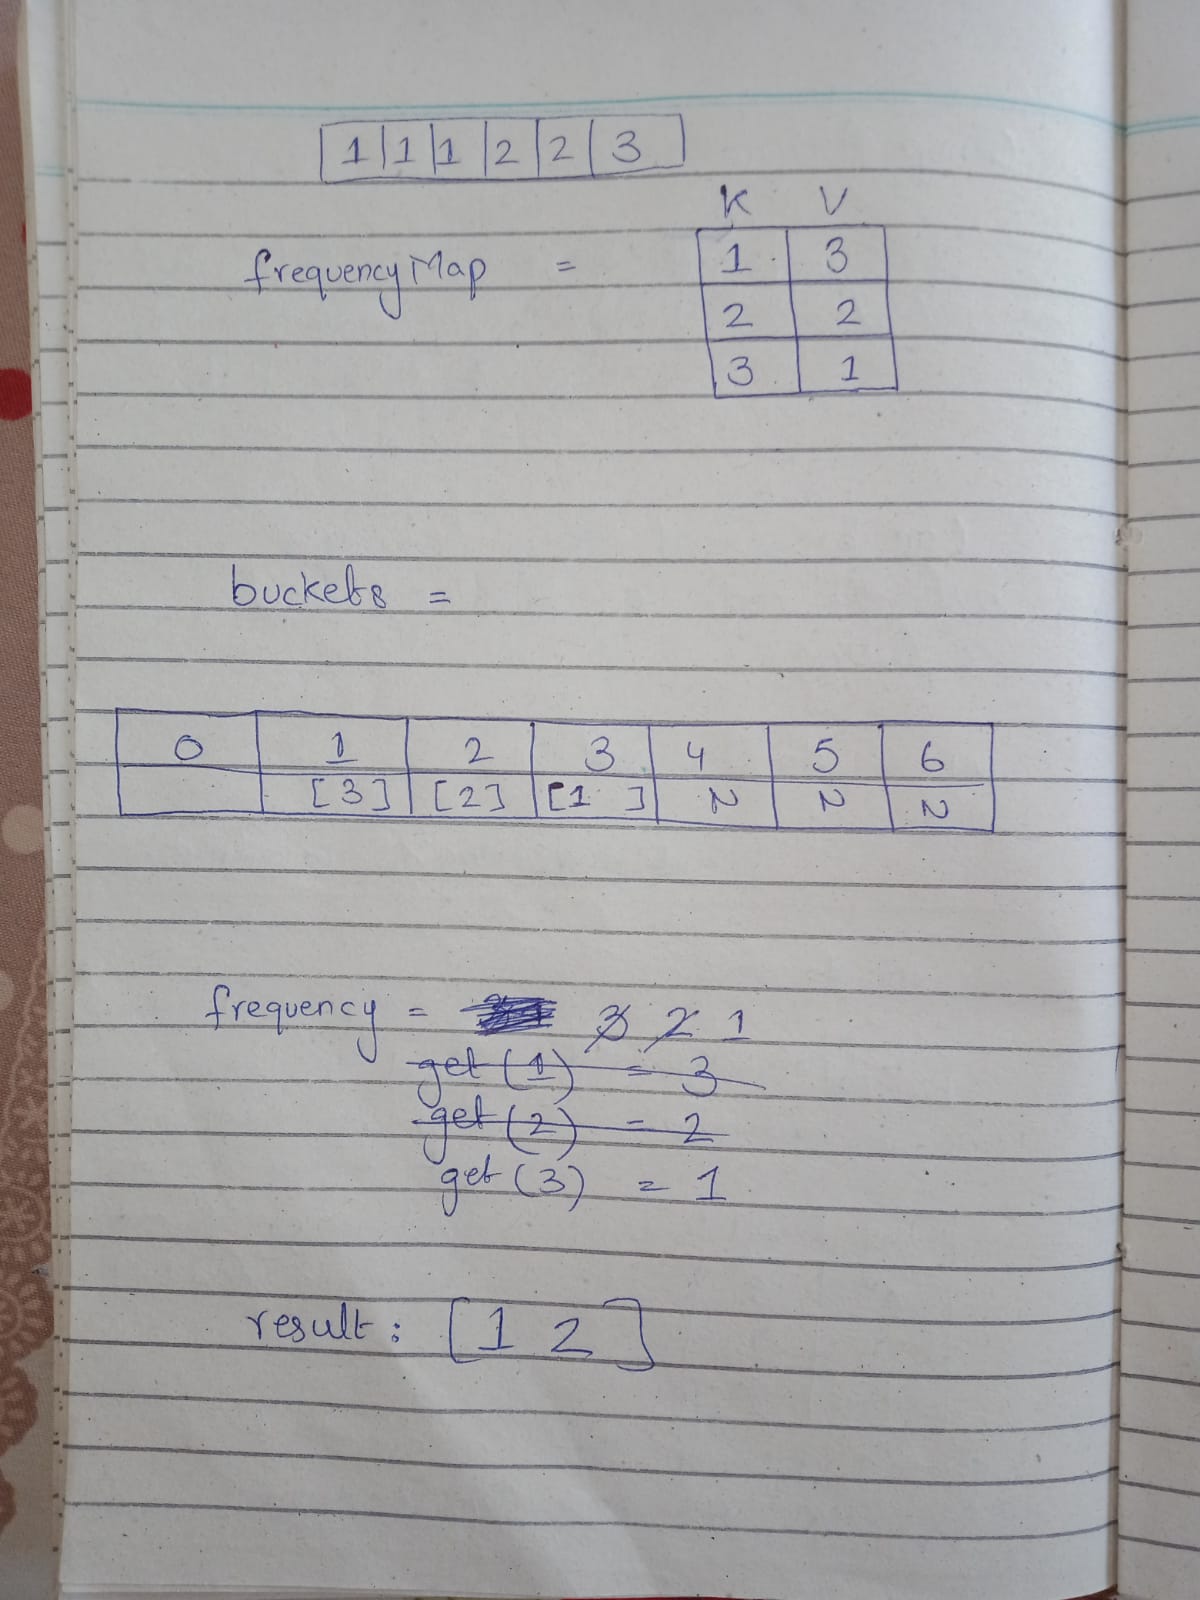 1 1 1 2 2 3
K V
frequencyMap = 1 3
2 2
3 1
buckets =
0 1 2 3 4 5 6
[3] [2] [1 ] N N N
frequency = 3 2 1
get (1) = 3
get (2) = 2
get (3) = 1
result : [1 2]